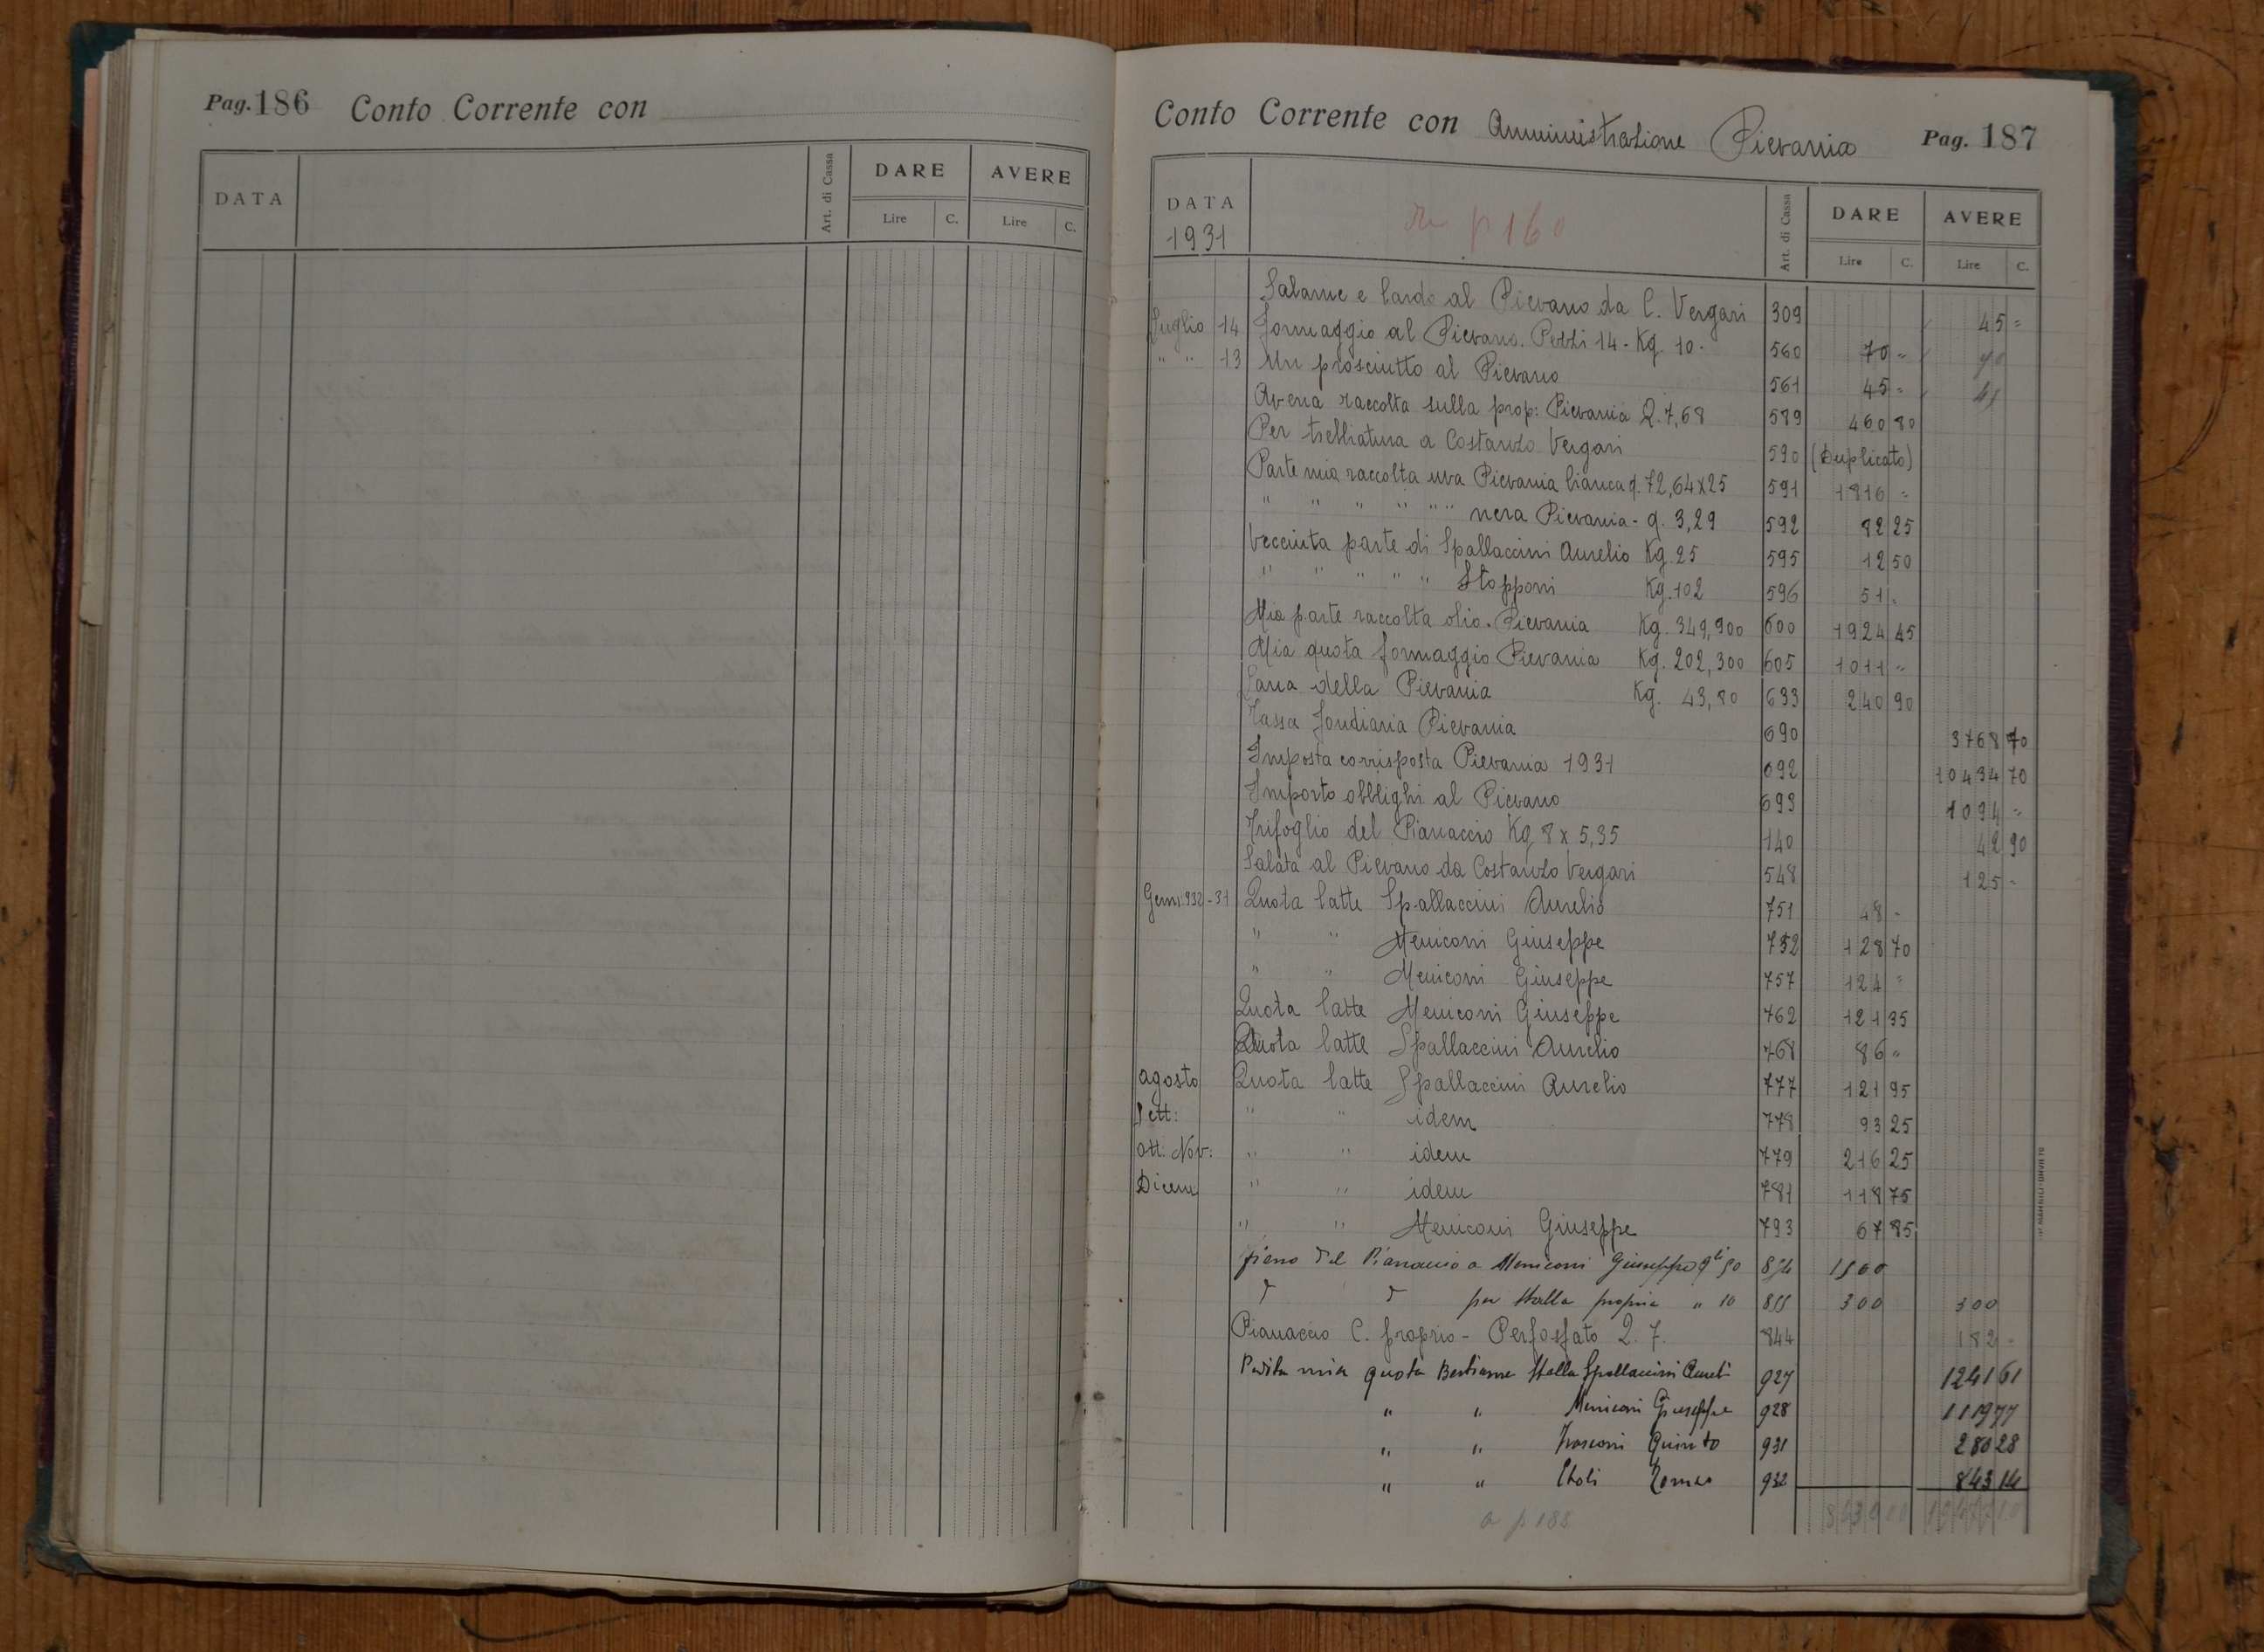 Pag. 186 Conto Corrente con
DATA Art. di Cassa DARE AVERE
Lire C. Lire C.
Conto Corrente con Amministrazione Pievania Pag. 187
DATA 1931 Da p 160 Art. di Cassa DARE AVERE
Lire C. Lire C.
Salame e lardo al Pievano da C. Vergari 309 45 =
Luglio 14 Formaggio al Pievano. Pezzi 14 - Kg. 10 - 560 70 " 70
" " 13 Un prosciutto al Pievano 561 45 = 45
Avena raccolta sulla prop: Pievania Q. 7,68 589 460 80
Per trebbiatura a Costanzo Vergari 590 (Duplicato)
Parte mia raccolta uva Pievania bianca q. 72,64x25 591 1816 =
" " " " " " nera Pievania - q. 3,29 592 82 25
Vecciuta parte di Spallaccini Aurelio Kg. 25 595 12 50
" " " " " Stopponi Kg. 102 596 51 =
Mia parte raccolta olio - Pievania Kg. 349,900 600 1924 45
Mia quota formaggio Pievania Kg. 202,300 605 1011 "
Lana della Pievania Kg. 43,80 633 240 90
Tassa fondiaria Pievania 690 3768 70
Imposta corrisposta Pievania 1931 692 10434 70
Importo obblighi al Pievano 693 1094 "
Trifoglio del Pianaccio Kg 8 x 5,35 140 42 90
Salata al Pievano da Costanzo Vergari 548 125 -
Genn: 932 - 31 Quota latte Spallaccini Aurelio 751 48 -
" " Meniconi Giuseppe 752 128 70
" " Meniconi Giuseppe 757 124 "
Quota latte Meniconi Giuseppe 762 121 35
Quota latte Spallaccini Aurelio 768 86 "
agosto Quota latte Spallaccini Aurelio 777 121 95
Sett: " " idem 778 93 25
Ott: Nov: " " idem 779 216 25
Dicem " " idem 781 118 75
" " Meniconi Giuseppe 793 67 85
fieno del Pianaccio a Meniconi Giuseppe Qli 50 854 1500
" " per stalla propria " 10 855 300 300
Pianaccio C. proprio - Perfosfato Q. 7. 844 182 -
Perdita mia quota Bestiame Stalla Spallaccini Aureli 927 1241 61
" " Meniconi Giuseppe 928 1119 77
" " Quinto 931 280 28
" " 932 843 14
a p 188